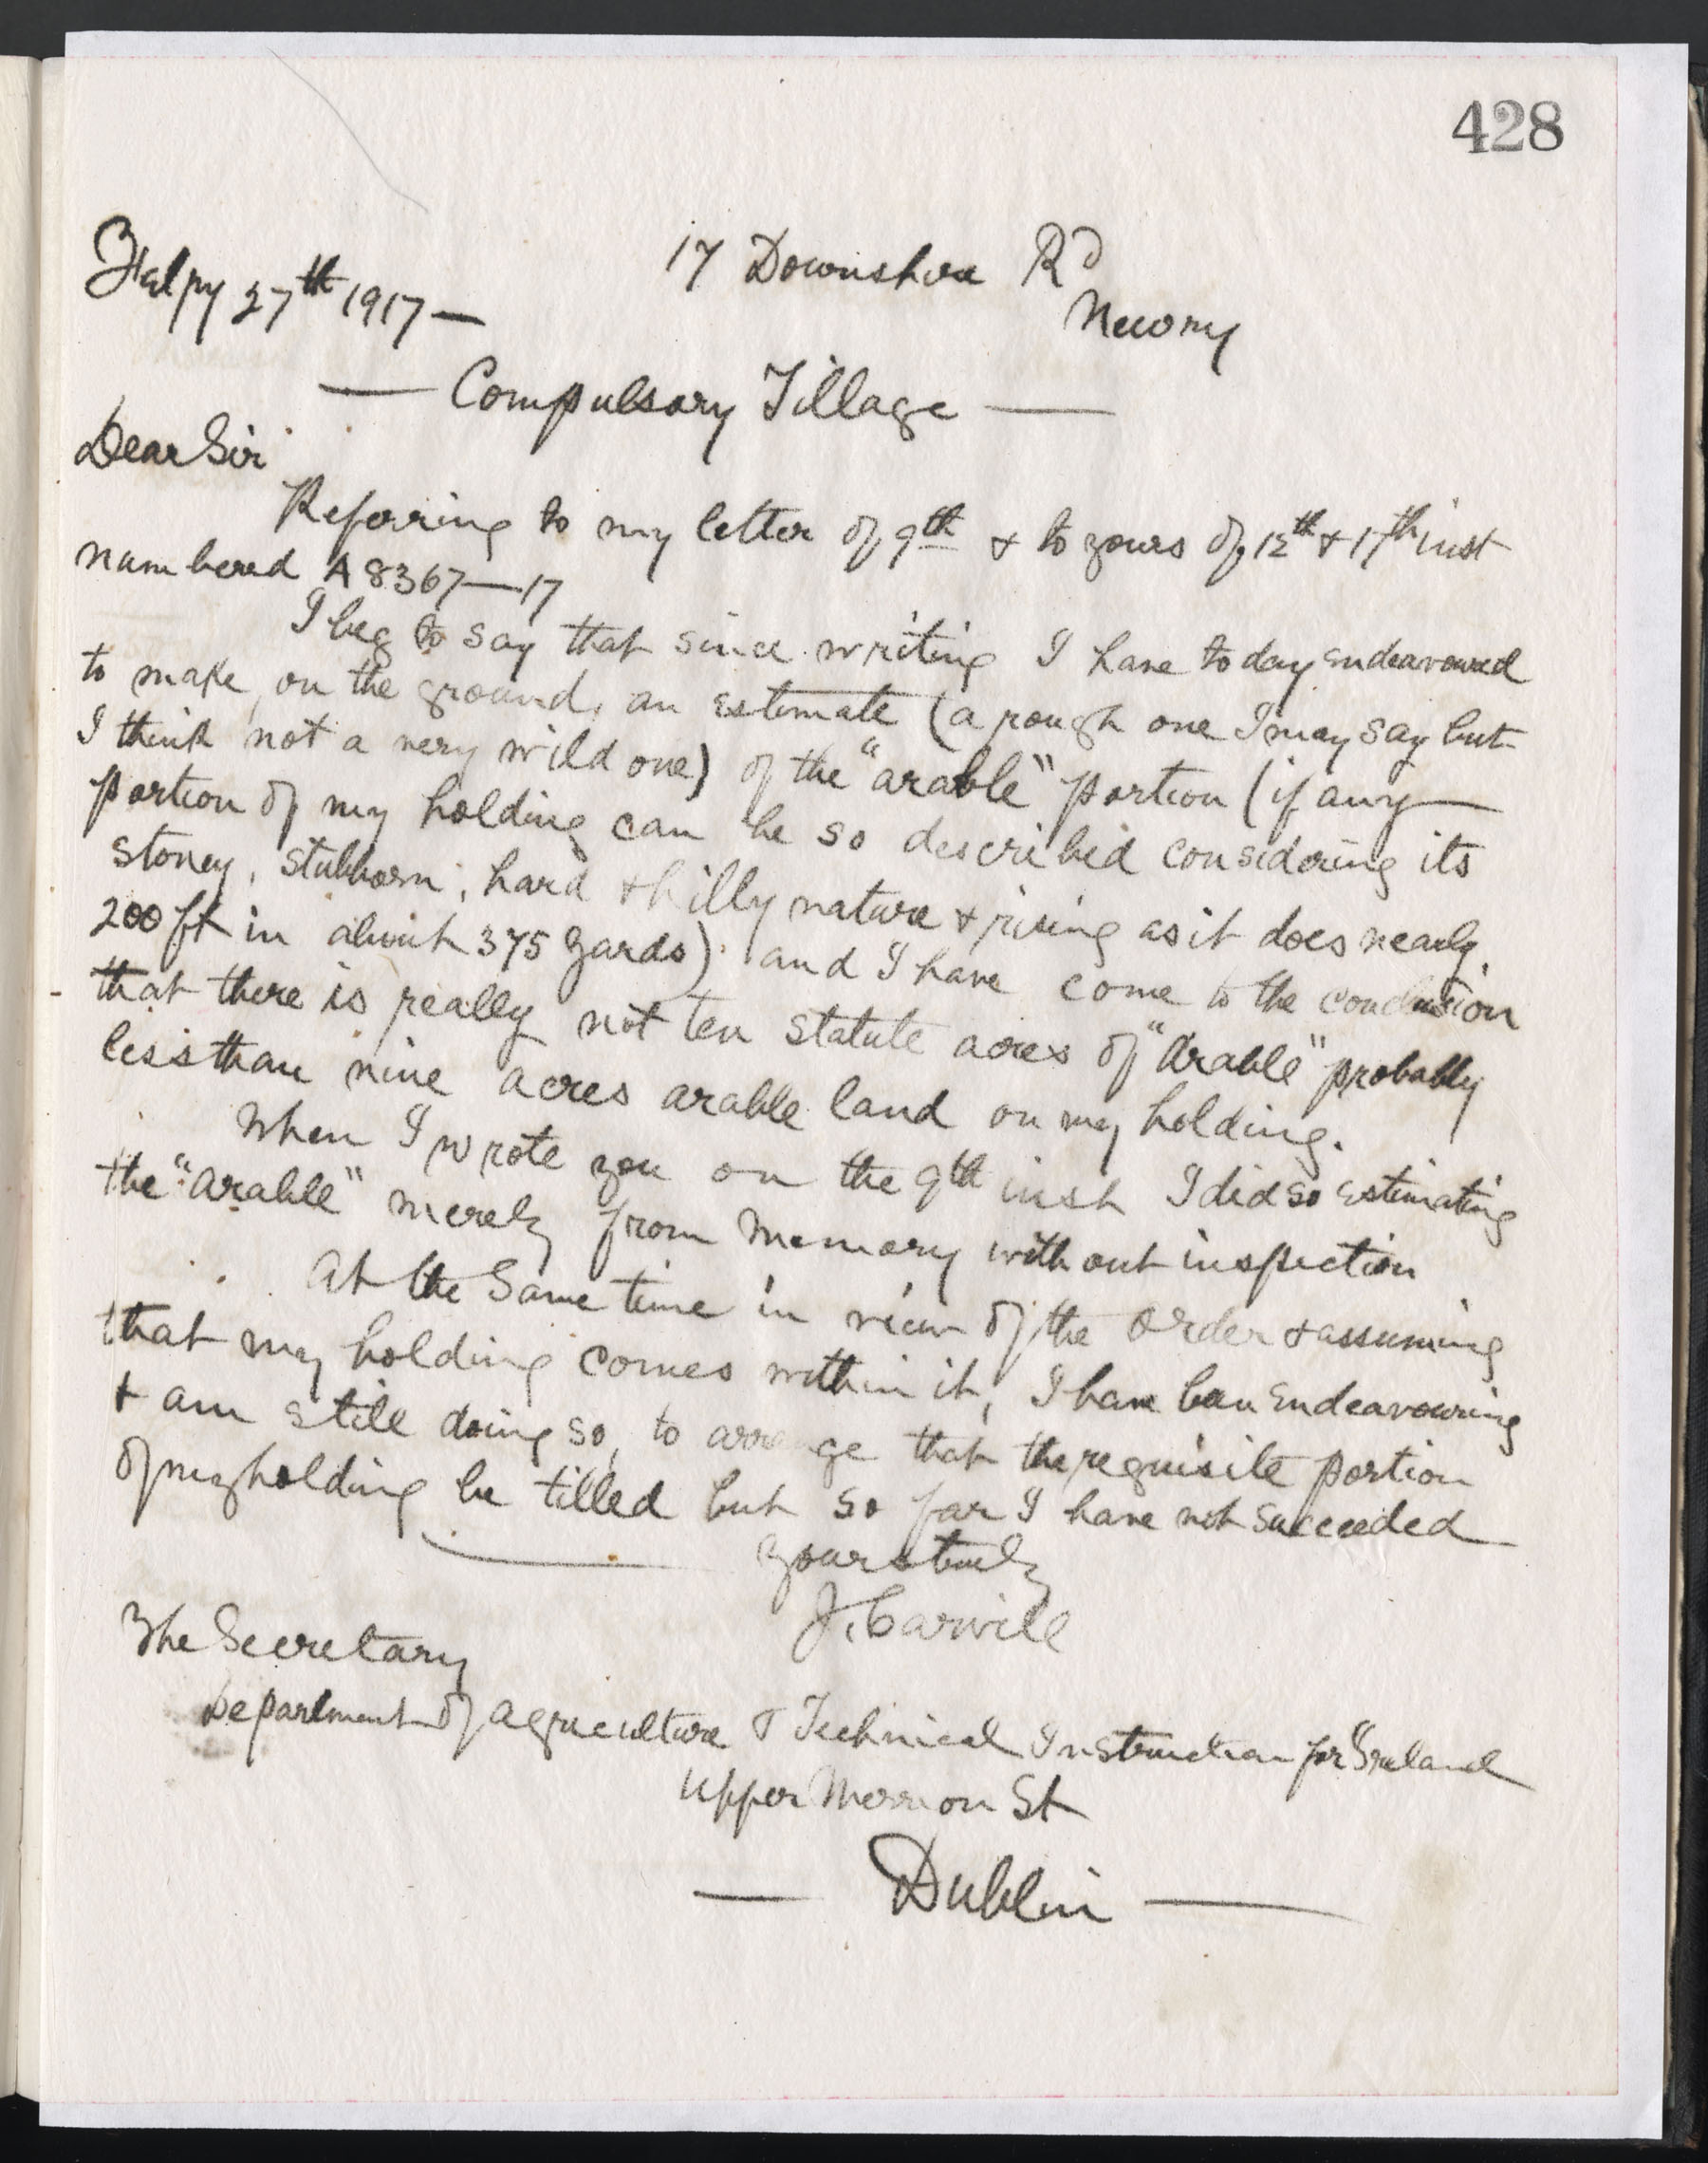 428
17 Downshire Rd
Feby 27th 1917 —
Newry
— Compulsory Tillage —
Dear Sir
Referring to my letter of 9th & to yours of 12th & 17th inst
numbered A 8367—17
I beg to say that since writing I have to day endeavoured
to make, on the ground, an estimate (a rough one I may say but
I think not a very wild one) of the "arable" portion (if any —
portion of my holding can be so described considering its
stoney, stubborn, hard & hilly nature & rising as it does nearly
200 ft in about 375 yards) and I have come to the conclusion
that there is really not ten statute acres of "Arable" probably
less than nine acres arable land on my holding.
When I wrote you on the 9th inst I did so estimating
the "Arable" merely from memory without inspection
At the same time in view of the order & assuming
that my holding comes within it, I have been endeavouring
& am still doing so, to arrange that the requisite portion
of my holding be tilled but so far I have not succeeded
yours truly
J. Carvill
The Secretary
Department of Agriculture & Technical Instruction for Ireland
Upper Merrion St
— Dublin —